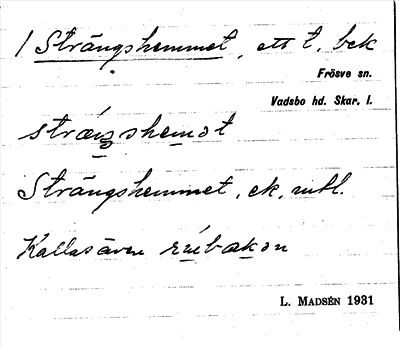 1 Strängshemmet, ett t. bek
Frösve sn.
Vadsbo hd. Skar. l.
sträŋshemet
Strängshemmet, ek. utbl.
Kallas även
L. MADSÉN 1931